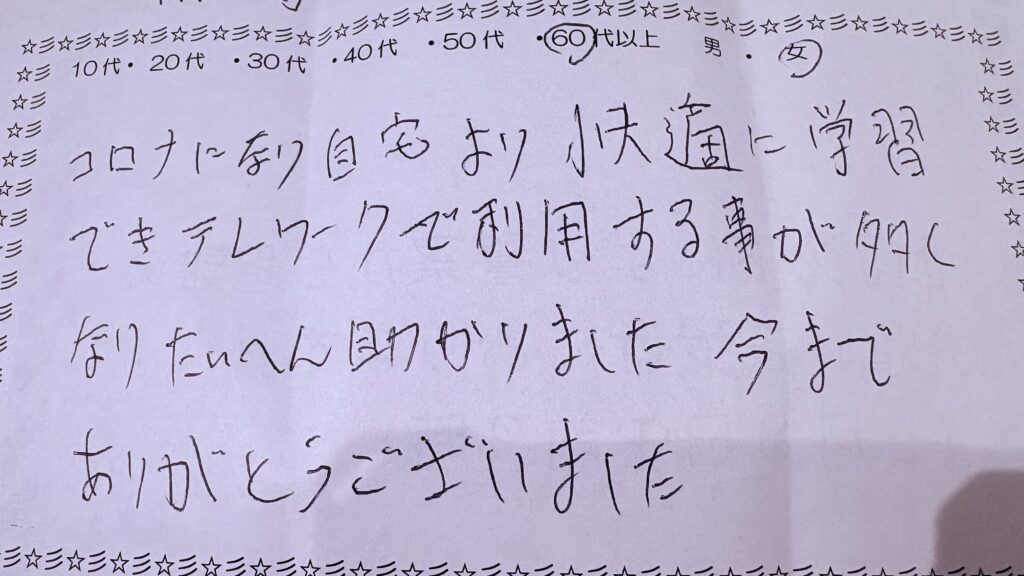 10代・20代・30代・40代・50代・60代以上 男・女
コロナになり自宅より快適に学習
できテレワークで利用する事が多く
なりたいへん助かりました 今まで
ありがとうございました